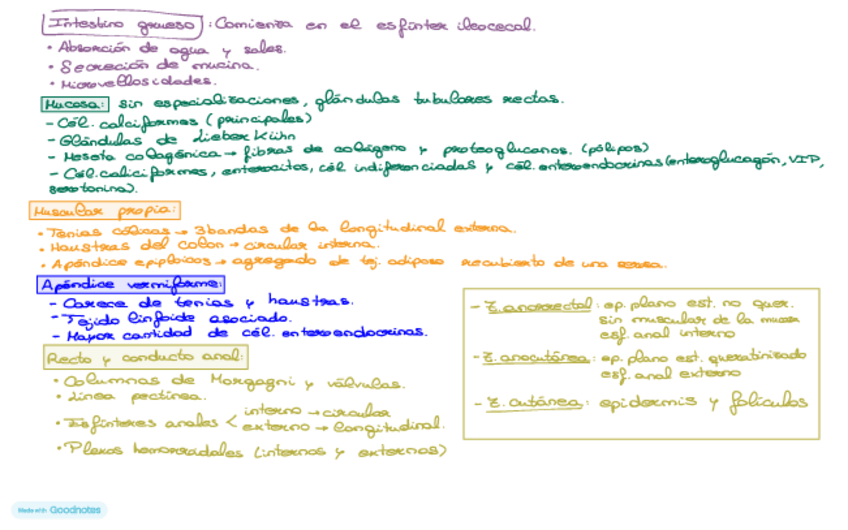 Intestino grueso: Comienza en el esfínter ileocecal.
• Absorción de agua y sales.
• Secreción de mucina.
• Microvellosidades.
Mucosa: sin especializaciones, glándulas tubulares rectas.
- Cél. caliciformes (principales)
- Glándulas de Lieberkühn
- Meseta colagénica → fibras de colágeno y proteoglucanos. (pólipos)
- Cél. caliciformes, enterocitos, cél indiferenciadas y cél. enteroendocrinas (enteroglucagón, VIP,
serotonina).
Muscular propia:
• Tenias cólicas → 3 bandas de la longitudinal externa.
• Haustras del colon → circular interna.
• Apéndice epiploicos → agregado de tej. adiposo recubierto de una serosa.
Apéndice vermiforme:
- Carece de tenias y haustras.
- Tejido linfoide asociado.
- Mayor cantidad de cél. enteroendocrinas.
Recto y conducto anal:
• Columnas de Morgagni y válvulas.
• Línea pectínea.
• Esfínteres anales < interno → circular
externo → longitudinal.
• Plexos hemorroidales (internos y externos)
- Z. anorrectal: ep. plano est. no quer.
sin muscular de la mucosa
esf. anal interno
- Z. anocutánea: ep. plano est. queratinizado
esf. anal externo
- Z. cutánea: epidermis y folículos
Made with Goodnotes